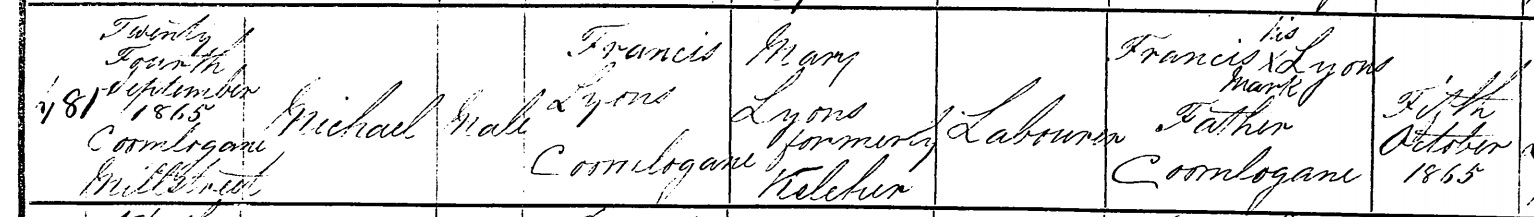 Twenty
Fourth
September
1865
Coomlogane
Millstreet
481
Michael
Male
Francis
Lyons
Coomlogane
Mary
Lyons
formerly
Keleher
Labourer
his
Francis X Lyons
Mark
Father
Coomlogane
Fifth
October
1865